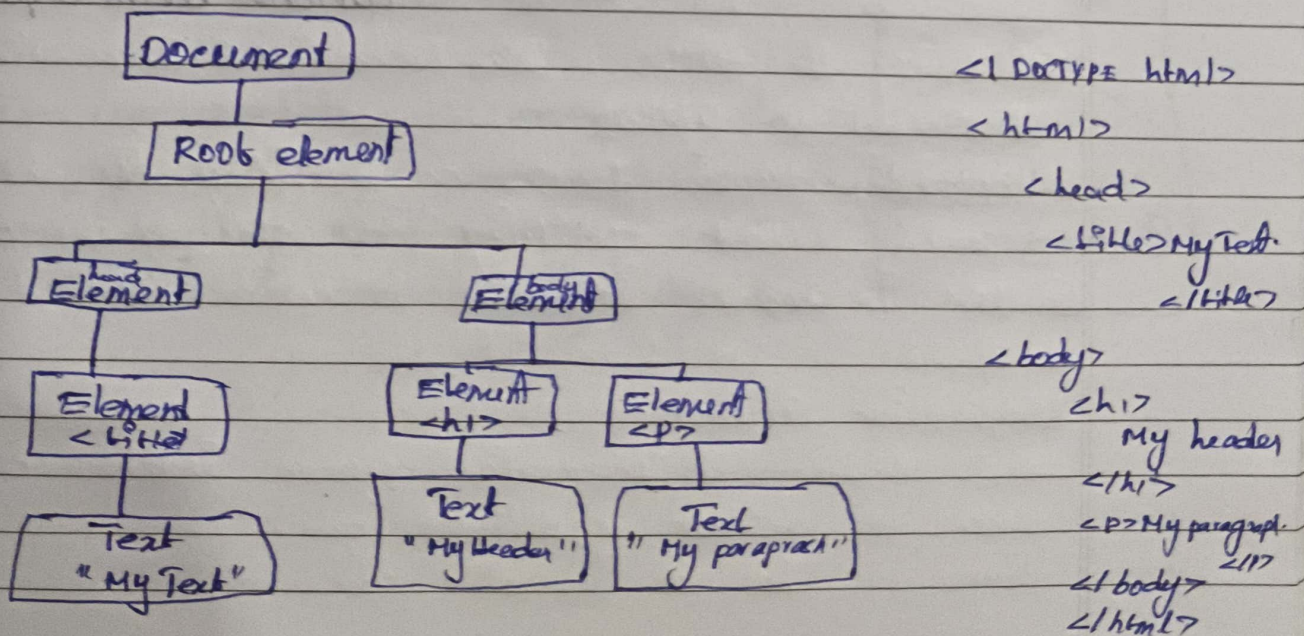 Document
Root element
head
Element
body
Element
Element
<title>
Element
<h1>
Element
<p>
Text
"My Text"
Text
"My Header"
Text
"My paraprach"
<! DOCTYPE html>
<html>
<head>
<title>My Text.
</title>
<body>
<h1>
My header
</h1>
<p>My paragraph.
</p>
</body>
</html>